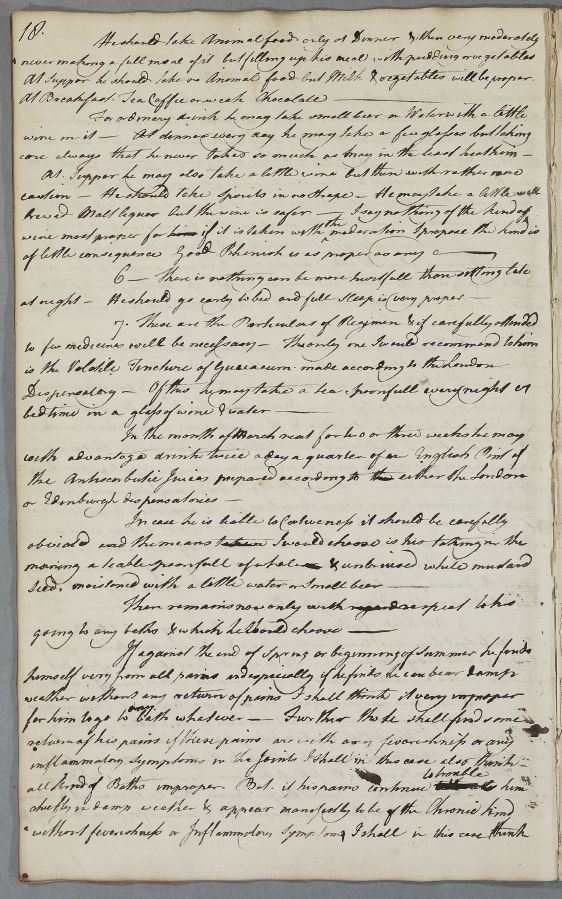 18.
He should take Animal food only at Dinner & then very moderately
never making a full meal of it but filling up his meal with pudding or vegetables
At Supper he should take no Animal food but Milk & vegetables will be proper.
At Breakfast. Tea Coffee or weak Chocolate —
For ordinary drink he may take small beer or Water with a little
wine in it — At dinner every day he may take a few glasses but taking
care always that he never takes so much as may in the least heat him —
At Supper he may also take a little wine but then with rather more
caution — He should take spirits in no shape — He may take a little well
brewed Malt liquor but the wine is safer — I say nothing of the kind of
wine most proper for him if it is taken with the moderation I propose the kind is
of little consequence Good Rhenish is as proper as any —
6 — There is nothing can be more hurtfull than sitting late
at night — He should go early to bed and full sleep is very proper —
7. These are the Particulars of Regimen & if carefully attended
to few medicines will be necessary — The only one I would recommend to him
is the Volatile Tincture of Guaiacum made according to the London
Dispensatory — Of this he may take a tea spoonfull every night at
bedtime in a glass of wine & water —
In the month of March next for two or three weeks he may
with advantage drink twice a day a quarter of an English Pint of
the Antiscorbutic Juices prepared according to the either the London
or Edinburgh dispensatories —
In case he is liable to Costiveness it should be carefully
obviated and the means I would choose is his taking in the
morning a table spoonfull of whole & unbruised white mustard
seed, moistened with a little water or small beer —
There remains now only with regard respect to his
going to any baths & which he should choose —
If against the end of Spring or beginning of Summer he finds
himself very from all pains and especially if he finds he can bear damp
weather without any return of pains I shall think it very improper
for him to go to any Bath whatever — Further tho he shall find some
return of his pains if these pains are with any feverishness or any
inflammatory symptoms in the Joints I shall in this case also think
all kind of Baths improper But if his pains continue to trouble him
chiefly in damp weather & appear manifestly to be of the Chronic kind
without feverishness or Inflammatory Symptoms I shall in this case think